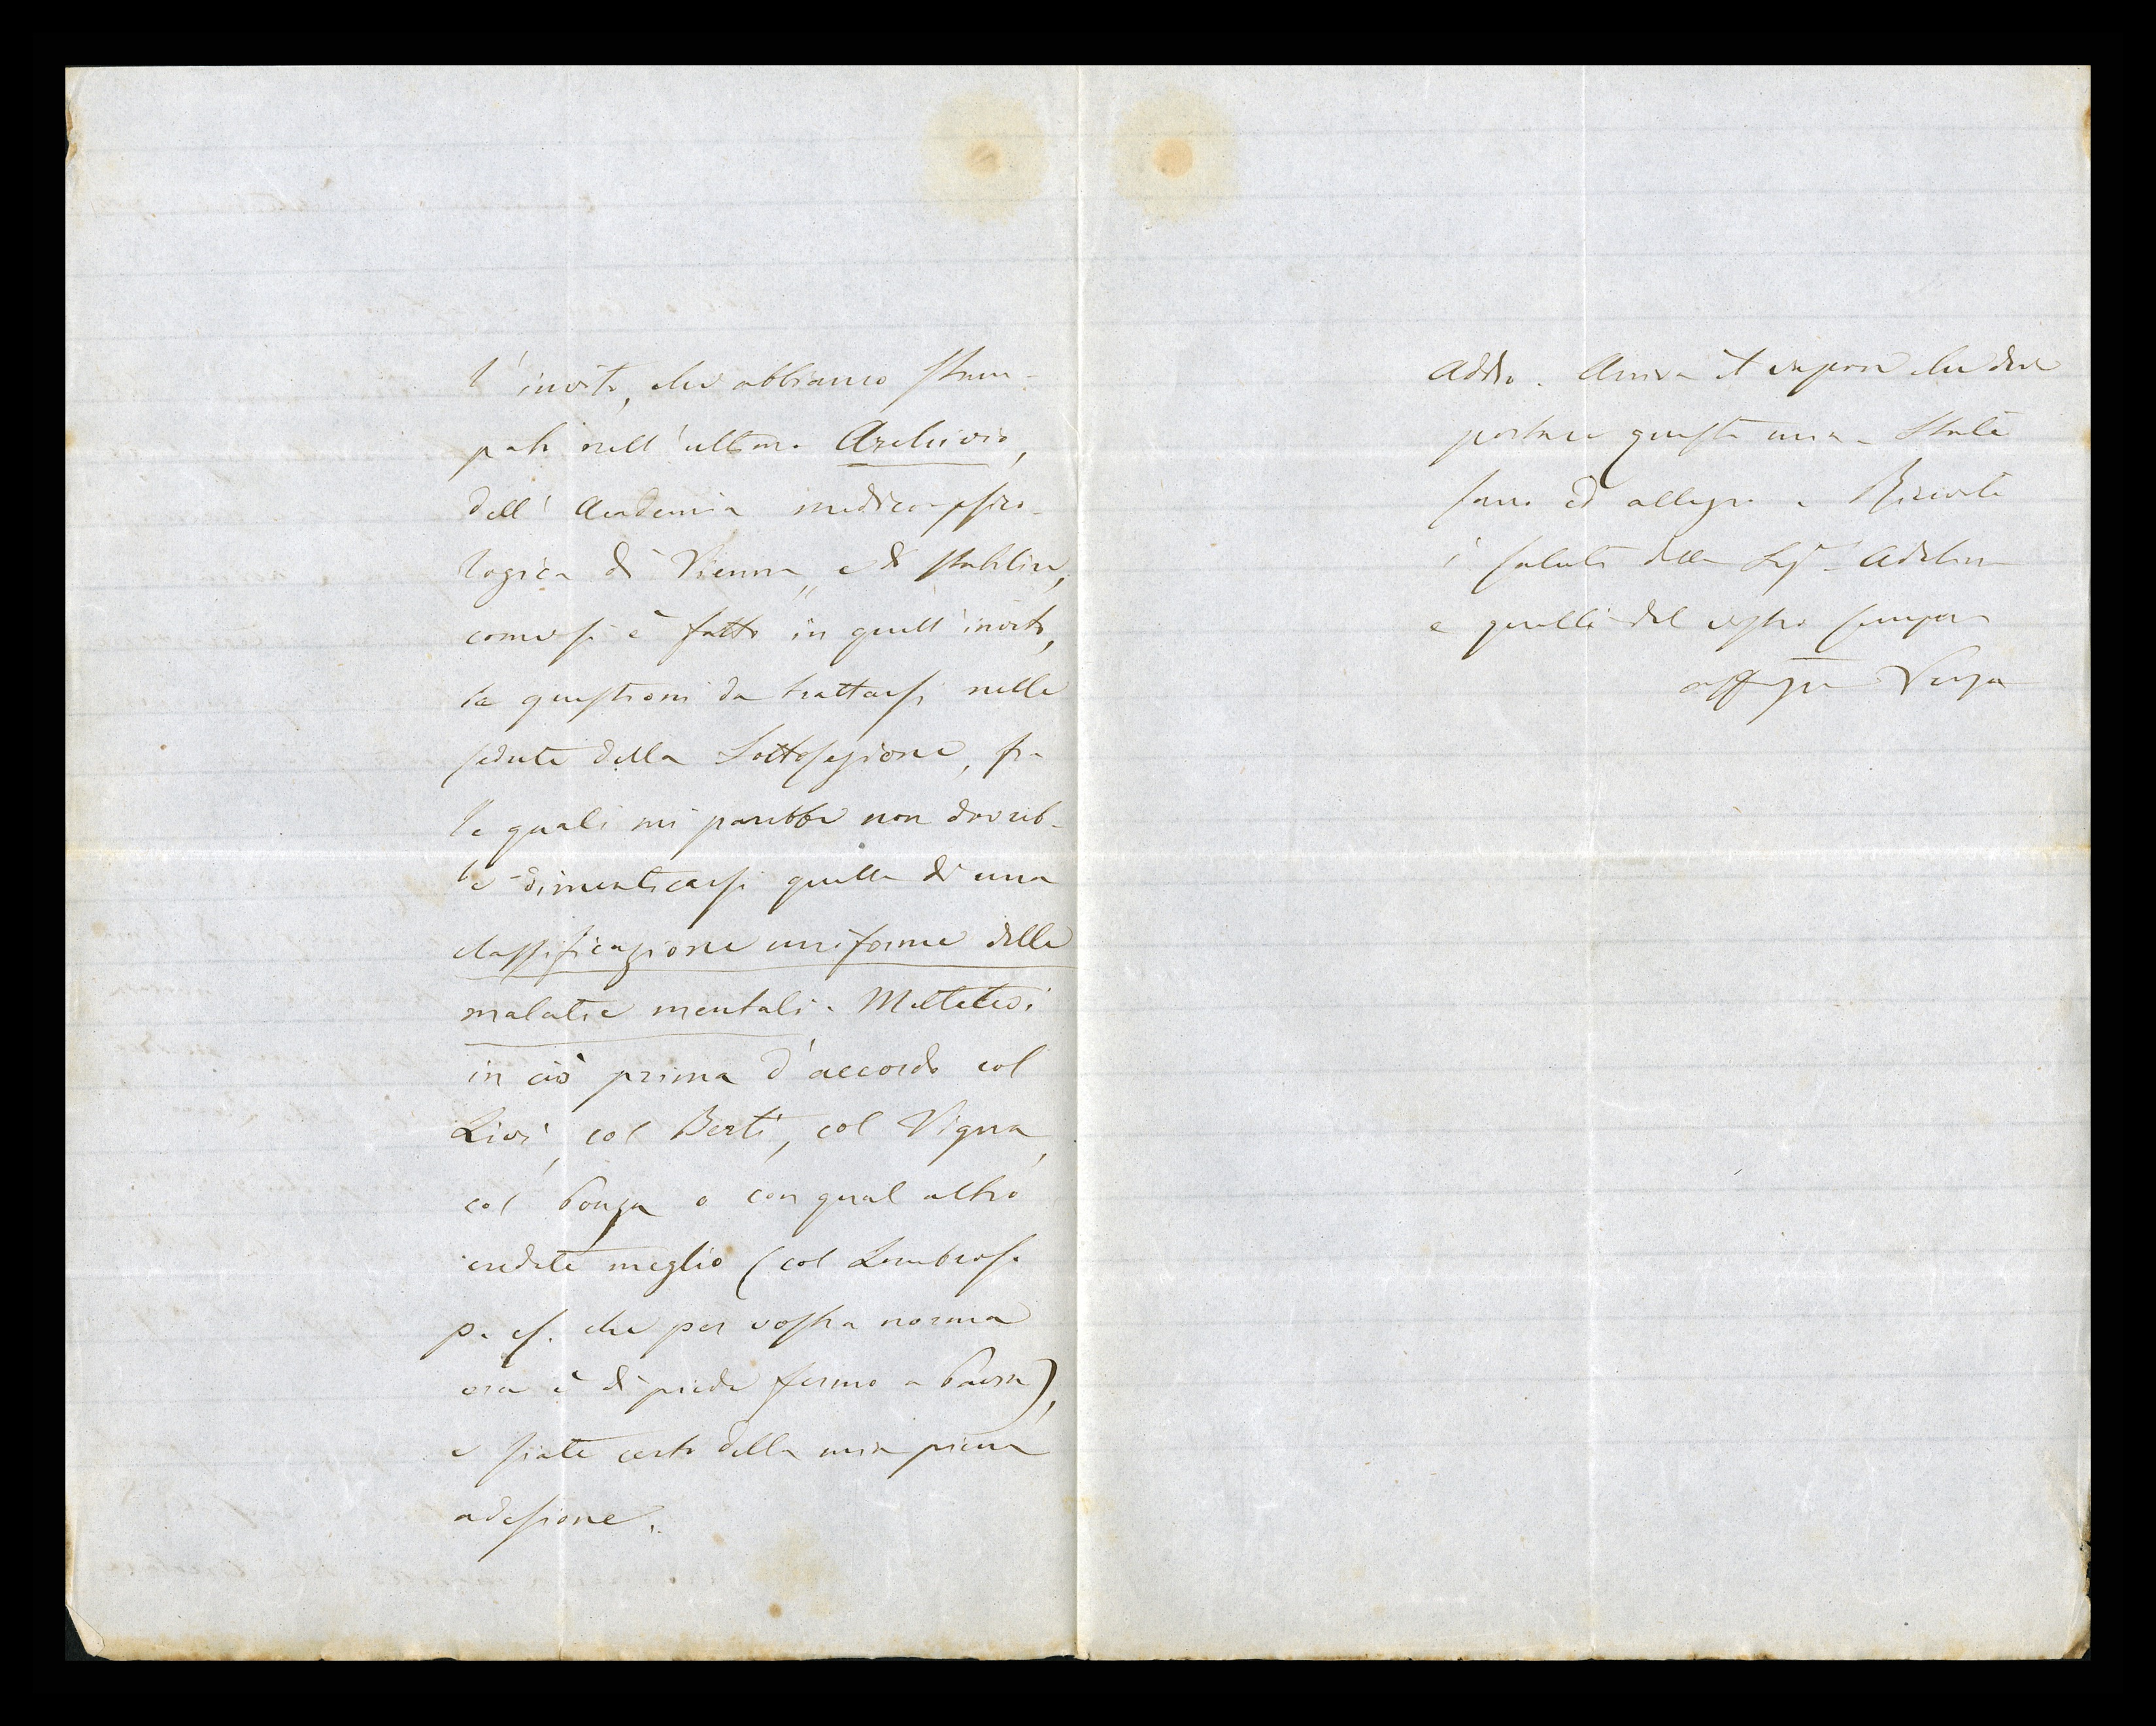 l'invito, che abbiamo stam-
pato nell'ultimo Archivio,
dell'Accademia medico-psico-
logica di Vienna, e di stabilire,
come si è fatto in quell'invito,
le questioni da trattarsi nelle
sedute della Sottosezione, fra
le quali mi parrebbe non dovreb-
be dimenticarsi quella di una
classificazione uniforme delle
malatie mentali. Mettetevi
in ciò prima d'accordo col
Livi, col Berti, col Vigna,
col Bonza o con qual altro
credete meglio (col Lombroso
p. es. che per vostra norma
ora è di piede fermo a Pavia),
e siate certo della mia piena
adesione.
Addio. Arriva il che deve
portare questa mia. State
sano ed allegro. Ricevete
i saluti della Sigª Adelina
e quelli del vostro sempre
Verga